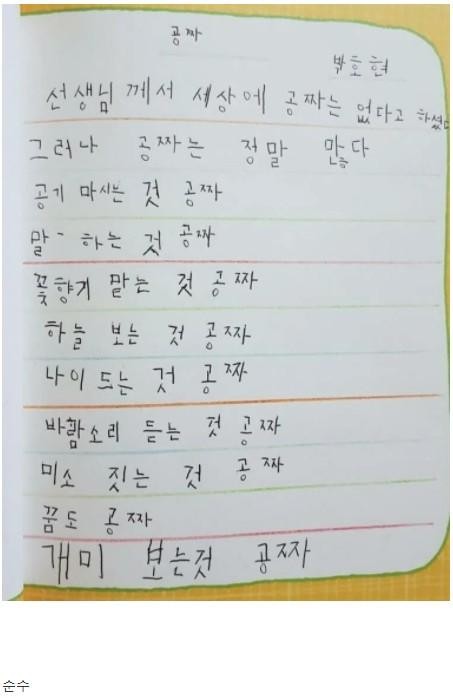 공짜
박호현
선생님 께서 세상에 공짜는 없다고 하셨다
그러나 공짜는 정말 많다
공기 마시는 것 공짜
말 - 하는 것 공짜
꽃향기 맡는 것 공짜
하늘 보는 것 공짜
나이 드는 것 공짜
바람소리 듣는 것 공짜
미소 짓는 것 공짜
꿈도 공짜
개미 보는것 공짜
순수